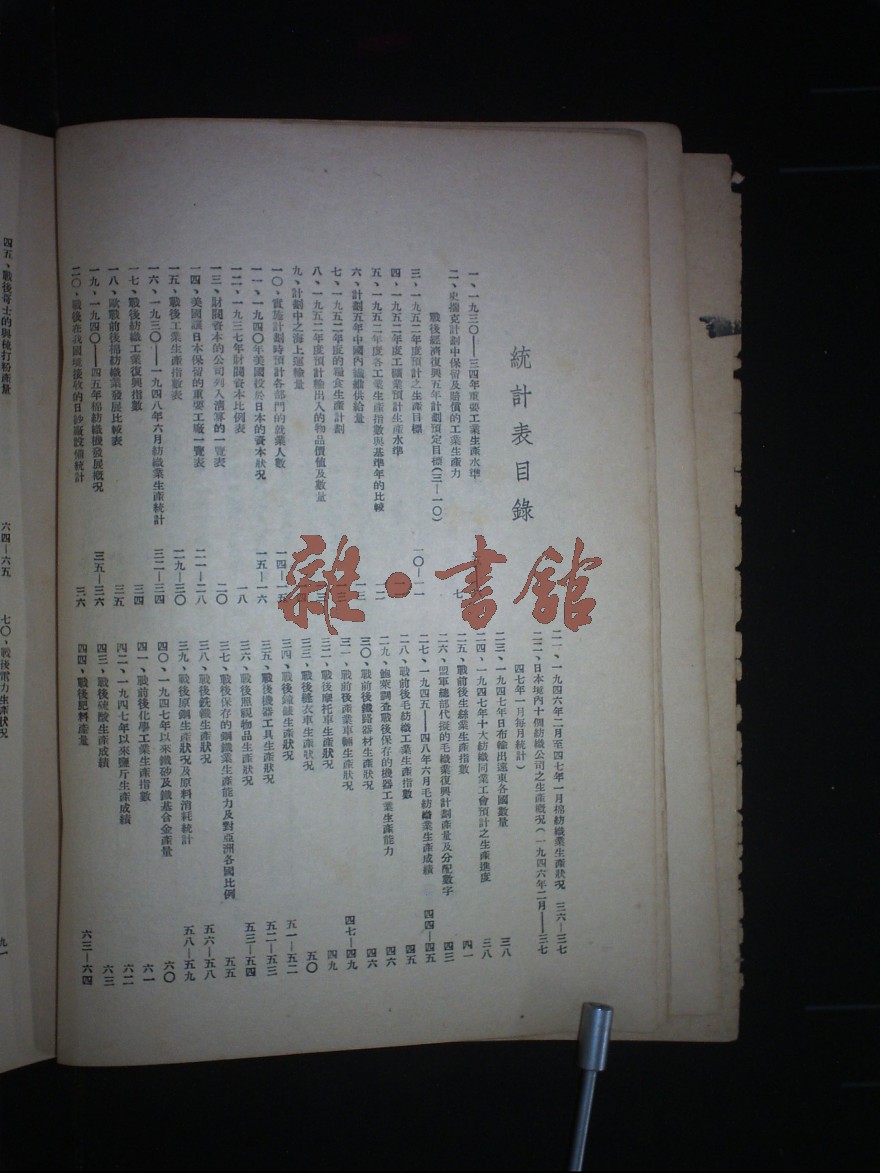 統計表目錄
一、一九三〇——三四年重要工業生產水準
二、史揣克計劃中保留及賠償的工業生產力 七
戰後經濟復興五年計劃預定目標(三—一〇)
三、一九五二年度預計之生產目標 一〇—一一
四、一九五二年度工礦業預計生產水準
五、一九五二年度各工業生產指數與基準年的比較 一二
六、計劃五年中國內纖維供給量 一三
七、一九五二年度的糧食生產計劃
八、一九五二年度預計輸出入的物品價值及數量
九、計劃中之海上運輸量
一〇、實施計劃時預計各部門的就業人數 一四—一五
一一、一九四〇年美國投於日本的資本狀況 一五—一六
一二、一九三七年財閥資本比例表 一八
一三、財閥資本的公司列入清算的一覽表 二〇
一四、美國讓日本保留的重要工廠一覽表 二一—二八
一五、戰後工業生產指數表 二九—三〇
一六、一九三〇—一九四八年六月紡織業生產統計 三二—三四
一七、戰後紡織工業復興指數 三四
一八、歐戰前後棉紡織業發展比較表 三五
一九、一九四〇——四五年棉紡織機發展概況 三五—三六
二〇、戰後在我國境後收的日紗廠設備統計 三六
二一、一九四六年二月至四七年一月棉紡織業生產狀况 三六—三七
二二、日本境內十個紡織公司之生產概況(一九四六年二月——三七
四七年一月每月統計)
二三、一九四七年日布輸出遠東各國數量 三八
二四、一九四七年十大紡織同業工會預計之生產進度 三八
二五、戰前後生絲業生產指數 四一
二六、盟軍總部代擬的毛織業復興計劃產量及分配數字 四三
二七、一九四五—四八年六月毛紡織業生產成績 四四—四五
二八、戰前後毛紡織工業生產指數 四五
二九、鮑萊調查戰後保存的機器工業生產能力 四六
三〇、戰前後鐵路器材生產狀況 四六
三一、戰前後產業車輛生產狀況 四七—四九
三二、戰後摩托車生產狀況 四九
三三、戰後縫衣車生產狀況 五〇
三四、戰後鐘錶生產狀況 五一—五二
三五、戰後機器工具生產狀況 五二—五三
三六、戰後照視物品生產狀況 五三—五四
三七、戰後保存的鋼鐵業生產能力及對亞洲各國比例 五五
三八、戰後銑鐵生產狀況 五六—五八
三九、戰後原鋼生產狀況及原料消耗統計 五八—五九
四〇、一九四七年以來鐵砂及鐵基合金產量 六〇
四一、戰前後化學工業生產指數 六一
四二、一九四七年以來鹽斤生產成績 六二
四三、戰後硫酸生產成績 六三
四四、戰後肥料產量 六三—六四
四五、戰後哥士的與梳打粉產量 六四—六五
七〇、戰後電力生產狀況 九一
雜·書館